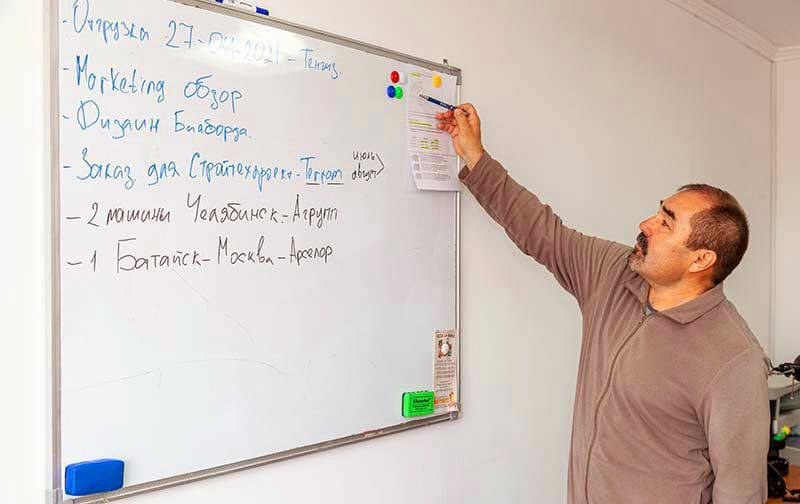 - Отгрузка 27-04-2021 - Тенгиз.
- Marketing обзор
- Дизайн Билборда.
- Заказ для Стройтехпроект - Terram июль август
- 2 машины Челябинск - Агрупп
- 1 Батайск - Москва - Арселор